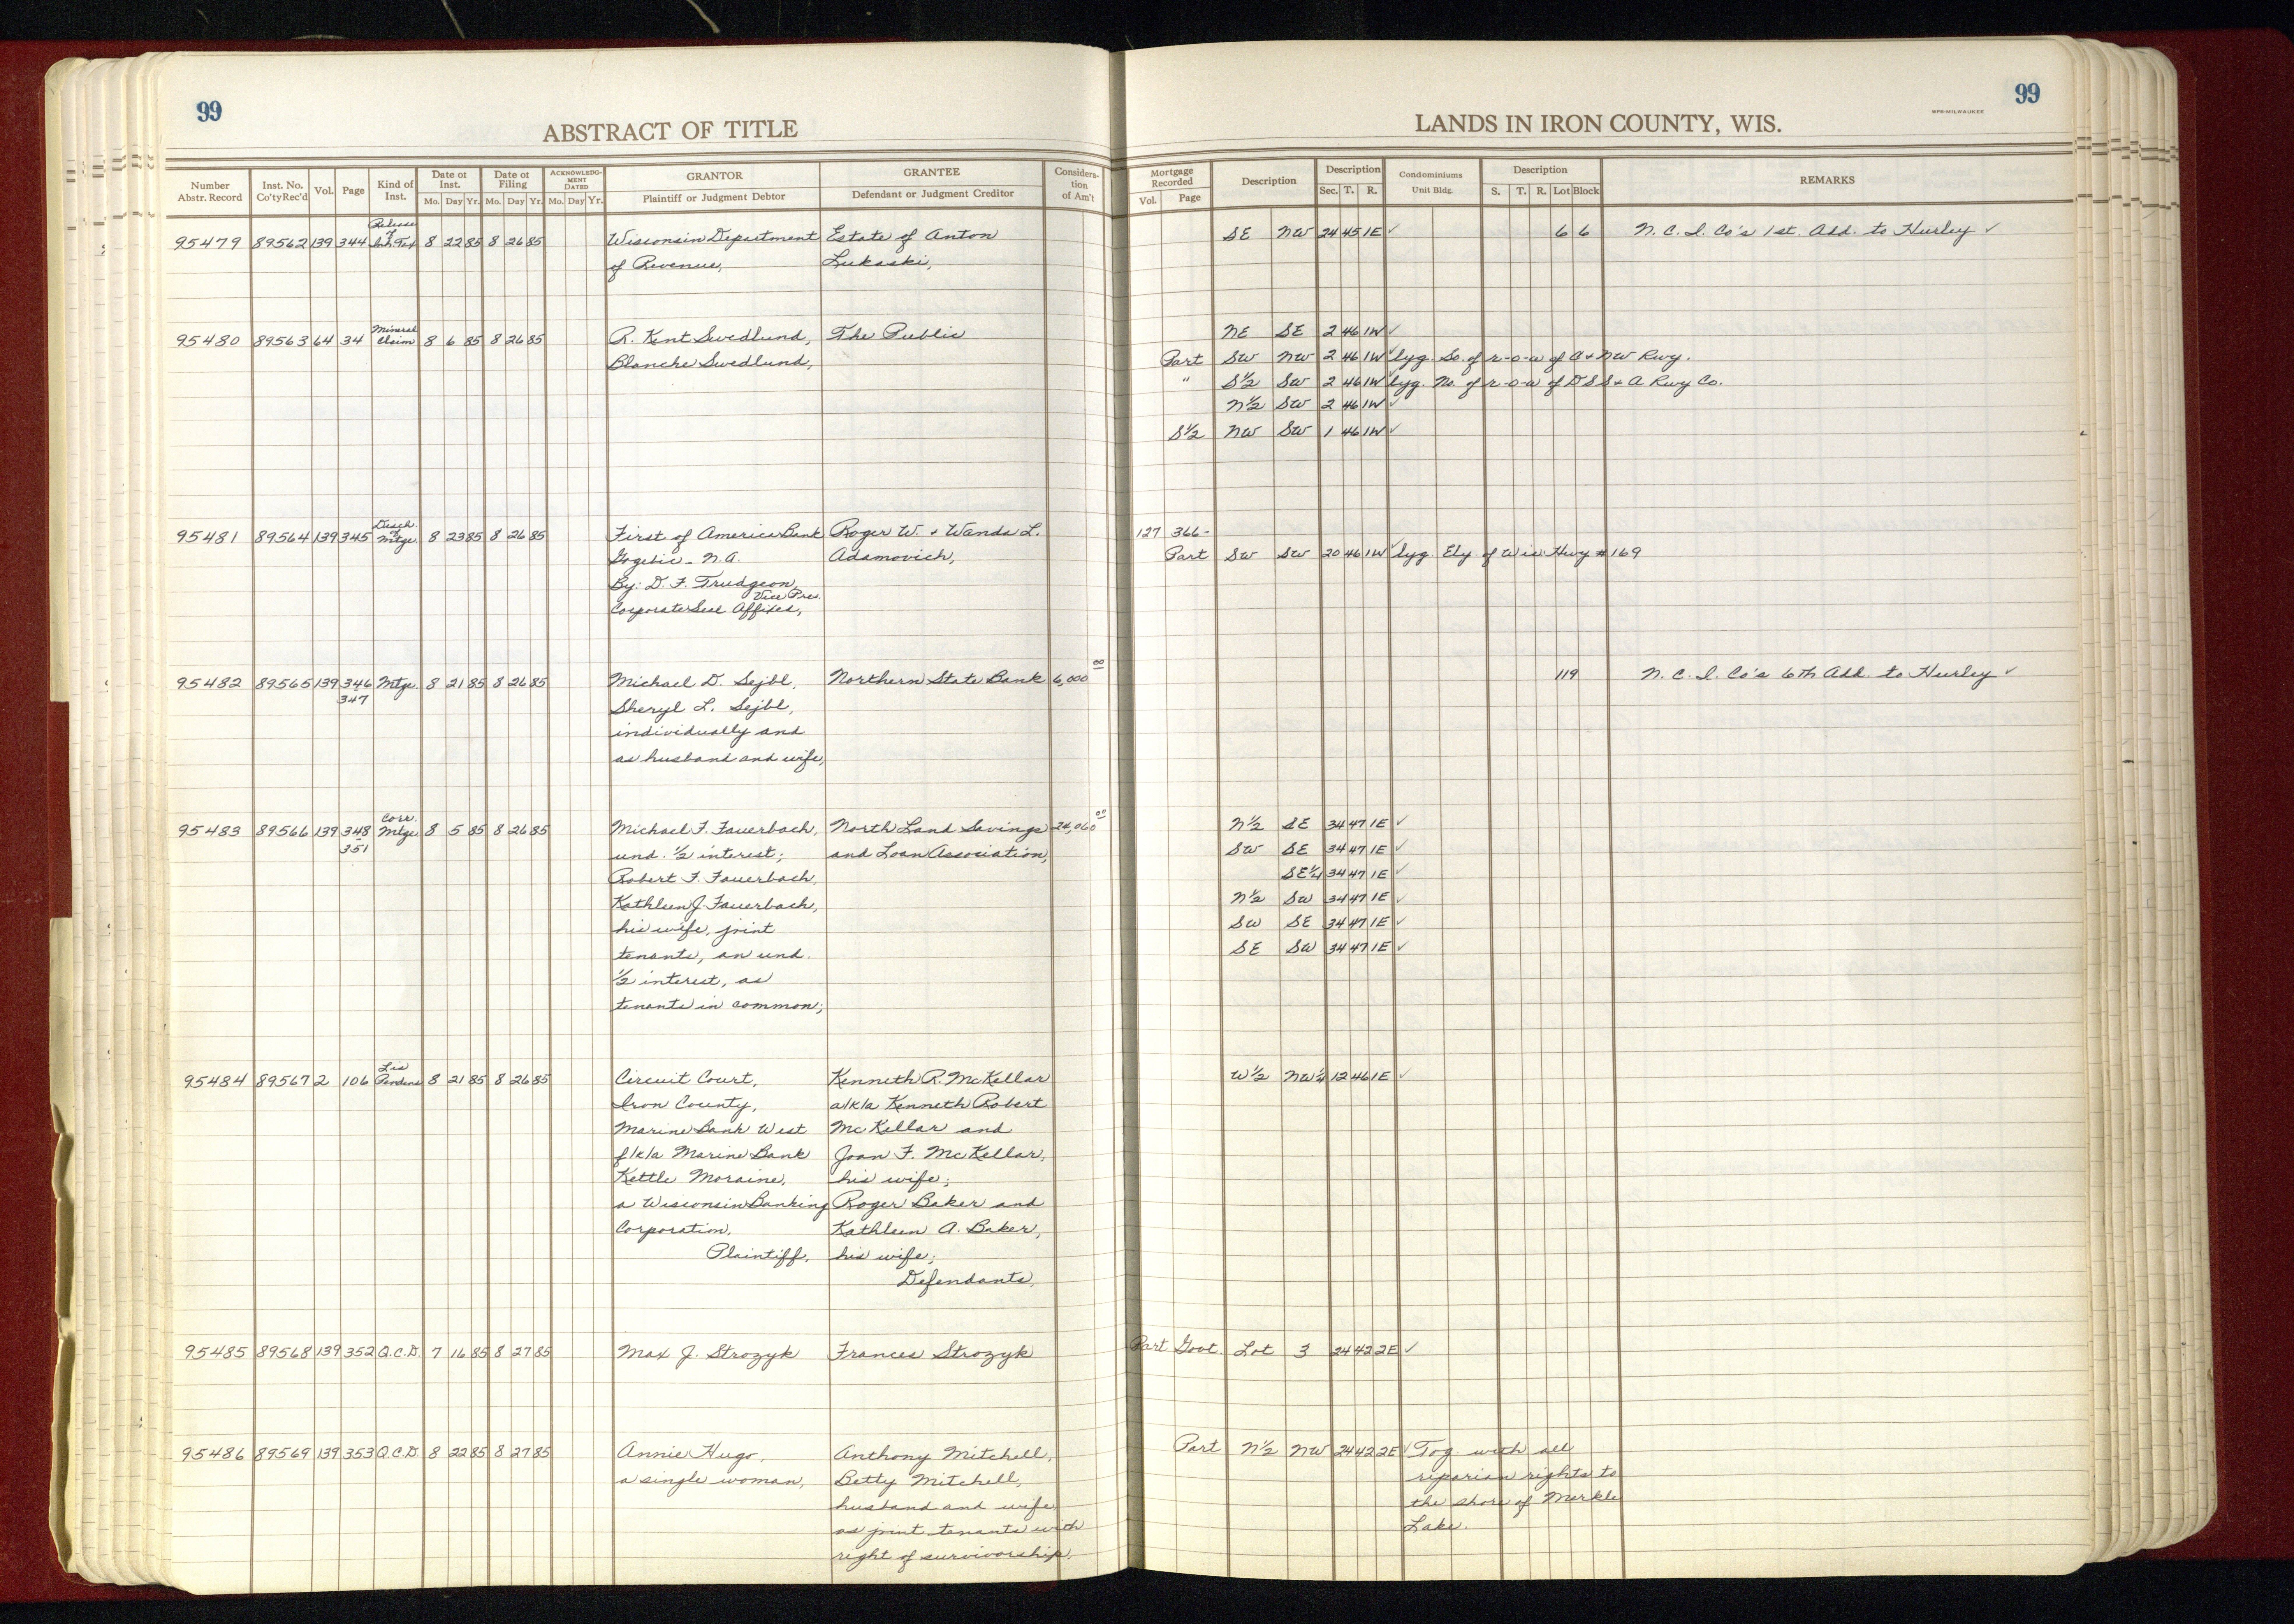 99
ABSTRACT OF TITLE
Number Abstr. Record | Inst. No. Co'ty Rec'd | Vol. | Page | Kind of Inst. | Date of Inst. Mo. Day Yr. | Date of Filing Mo. Day Yr. | ACKNOWLEDGMENT DATED Mo. Day Yr. | GRANTOR Plaintiff or Judgment Debtor | GRANTEE Defendant or Judgment Creditor | Consideration of Am't
95479 89562 139 344 Release of Inh. Tax 8 22 85 8 26 85 Wisconsin Department Estate of Anton
of Revenue, Lukaski,
95480 89563 64 34 Mineral Claim 8 6 85 8 26 85 R. Kent Swedlund, The Public
Blanche Swedlund,
95481 89564 139 345 Disch. of Mtge. 8 23 85 8 26 85 First of America Bank Roger W. + Wanda L.
Gogebic - N.A. Adamovich,
By: D. F. Trudgeon,
Vice Pres.
Corporate Seal Affixed,
95482 89565 139 346 Mtge. 8 21 85 8 26 85 Michael D. Sejbl, Northern State Bank 6,000 00
347 Sheryl L. Sejbl,
individually and
as husband and wife,
95483 89566 139 348 Corr. Mtge 8 5 85 8 26 85 Michael F. Fauerbach, North Land Savings 00
351 und. 1/2 interest; and Loan Association,
Robert F. Fauerbach,
Kathleen J. Fauerbach,
his wife, joint
tenants, an und.
1/2 interest, as
tenants in common;
95484 89567 2 106 Lis Pendens 8 21 85 8 26 85 Circuit Court, Kenneth R. McKellar
Iron County, a/k/a Kenneth Robert
Marine Bank West McKellar and
f/k/a Marine Bank Joan F. McKellar,
Kettle Moraine, his wife;
a Wisconsin Banking Roger Baker and
Corporation, Kathleen A. Baker,
Plaintiff, his wife;
Defendants,
95485 89568 139 352 Q.C.D. 7 16 85 8 27 85 Max J. Strozyk Frances Strozyk
95486 89569 139 353 Q.C.D. 8 22 85 8 27 85 Annie Hugo, Anthony Mitchell,
a single woman, Betty Mitchell,
husband and wife
as joint tenants with
right of survivorship.
99
WPB-MILWAUKEE
LANDS IN IRON COUNTY, WIS.
Mortgage Recorded Vol. Page | Description | Description Sec. T. R. | Condominiums Unit Bldg. | Description S. T. R. Lot Block | REMARKS
SE NW 24 45 1E ✓ 6 6 N. C. I. Co's 1st. Add. to Hurley ✓
NE SE 2 46 1W ✓
Part SW NW 2 46 1W ✓ lyg. So. of r-o-w of C+NW Rwy.
" S1/2 SW 2 46 1W ✓ lyg. No. of r-o-w of DSS+A Rwy Co.
N1/2 SW 2 46 1W ✓
S1/2 NW SW 1 46 1W ✓
127 366-
Part SW SW 20 46 1W ✓ lyg. Ely of Wis Hwy # 169
119 N. C. I. Co's 6th Add. to Hurley ✓
N1/2 SE 34 47 1E ✓
SW SE 34 47 1E ✓
SE1/4 34 47 1E ✓
N1/2 SW 34 47 1E ✓
SW SE 34 47 1E ✓
SE SW 34 47 1E ✓
W1/2 NW1/4 12 46 1E ✓
Part Govt. Lot 3 24 42 2E ✓
Part N1/2 NW 24 42 2E ✓ Tog. with all
riparian rights to
the shore of Merkle
Lake.